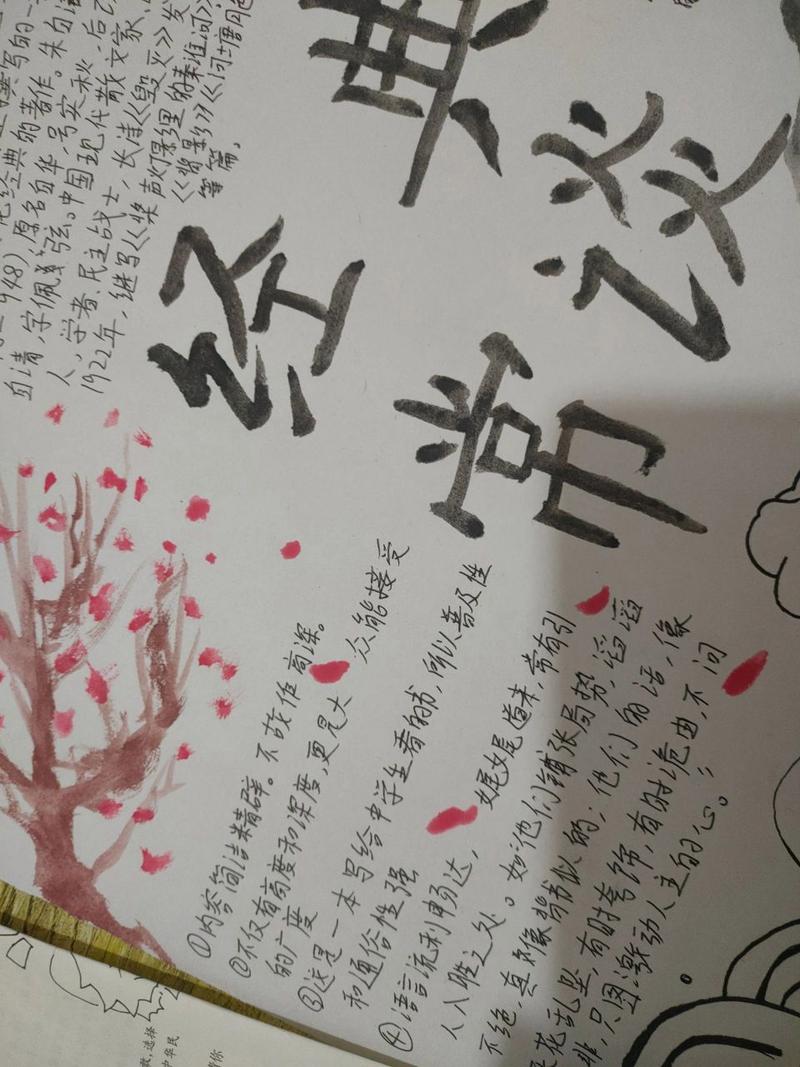 经典
常谈
撰写的一
经典的著作。朱自
948),原名自华,号实秋,后
自清,字佩弦。中国现代散文家、
人,学者、民主战士,长诗《毁灭》发
1922年,继写《桨声灯
《背影》
等篇。
①内容简洁精辟。不故作高深。
②不仅有高度和深度,更是大众能接受
的广度
③这是一本写给中学生看的书,所以普及性
和通俗性强
④语言流利畅达,娓娓道来,常有引
人入胜之处。如“他们铺张局势,滔滔
不绝,真像背书似的;他们的话,像
天花乱坠,有时夸饰,有时诡曲,不问
是非,只图激动人主的心。”
。